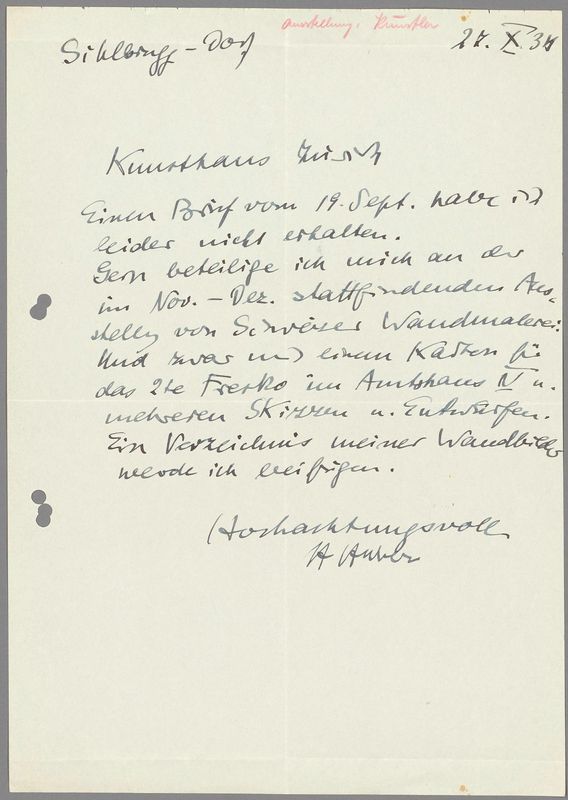 Ausstellung: Künstler
Sihlbrugg-Dorf 27. X. 34
Kunsthaus Zürich
Einen Brief vom 19. Sept. habe ich
leider nicht erhalten.
Gern beteilige ich mich an der
im Nov. – Dez. stattfindenden Aus=
stellg von Schweizer Wandmalerei.
Und zwar mit einem Karton für
das 2te Fresko im Amtshaus IV u.
mehreren Skizzen u. Entwürfen.
Ein Verzeichnis meiner Wandbilder
werde ich beifügen.
Hochachtungsvoll
H Huber